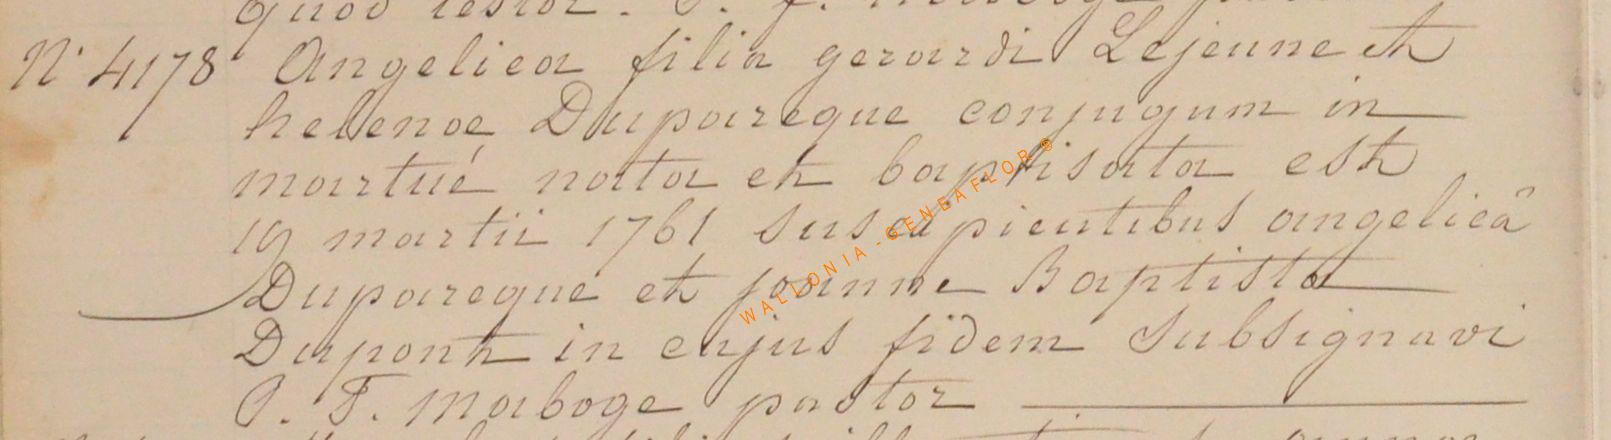 quod testor. P. F. Maboge
N° 4178 Angelica filia gerardi Lejeune et
helenoe Duparcque conjugum in
martué nata et baptisata est
19 martii 1761 suscipientibus angelicâ
Duparcque et joanne Baptista
Dupont in cujus fidem subsignavi
P. F. Maboge pastor
WALLONIA-GENEAFLOR®